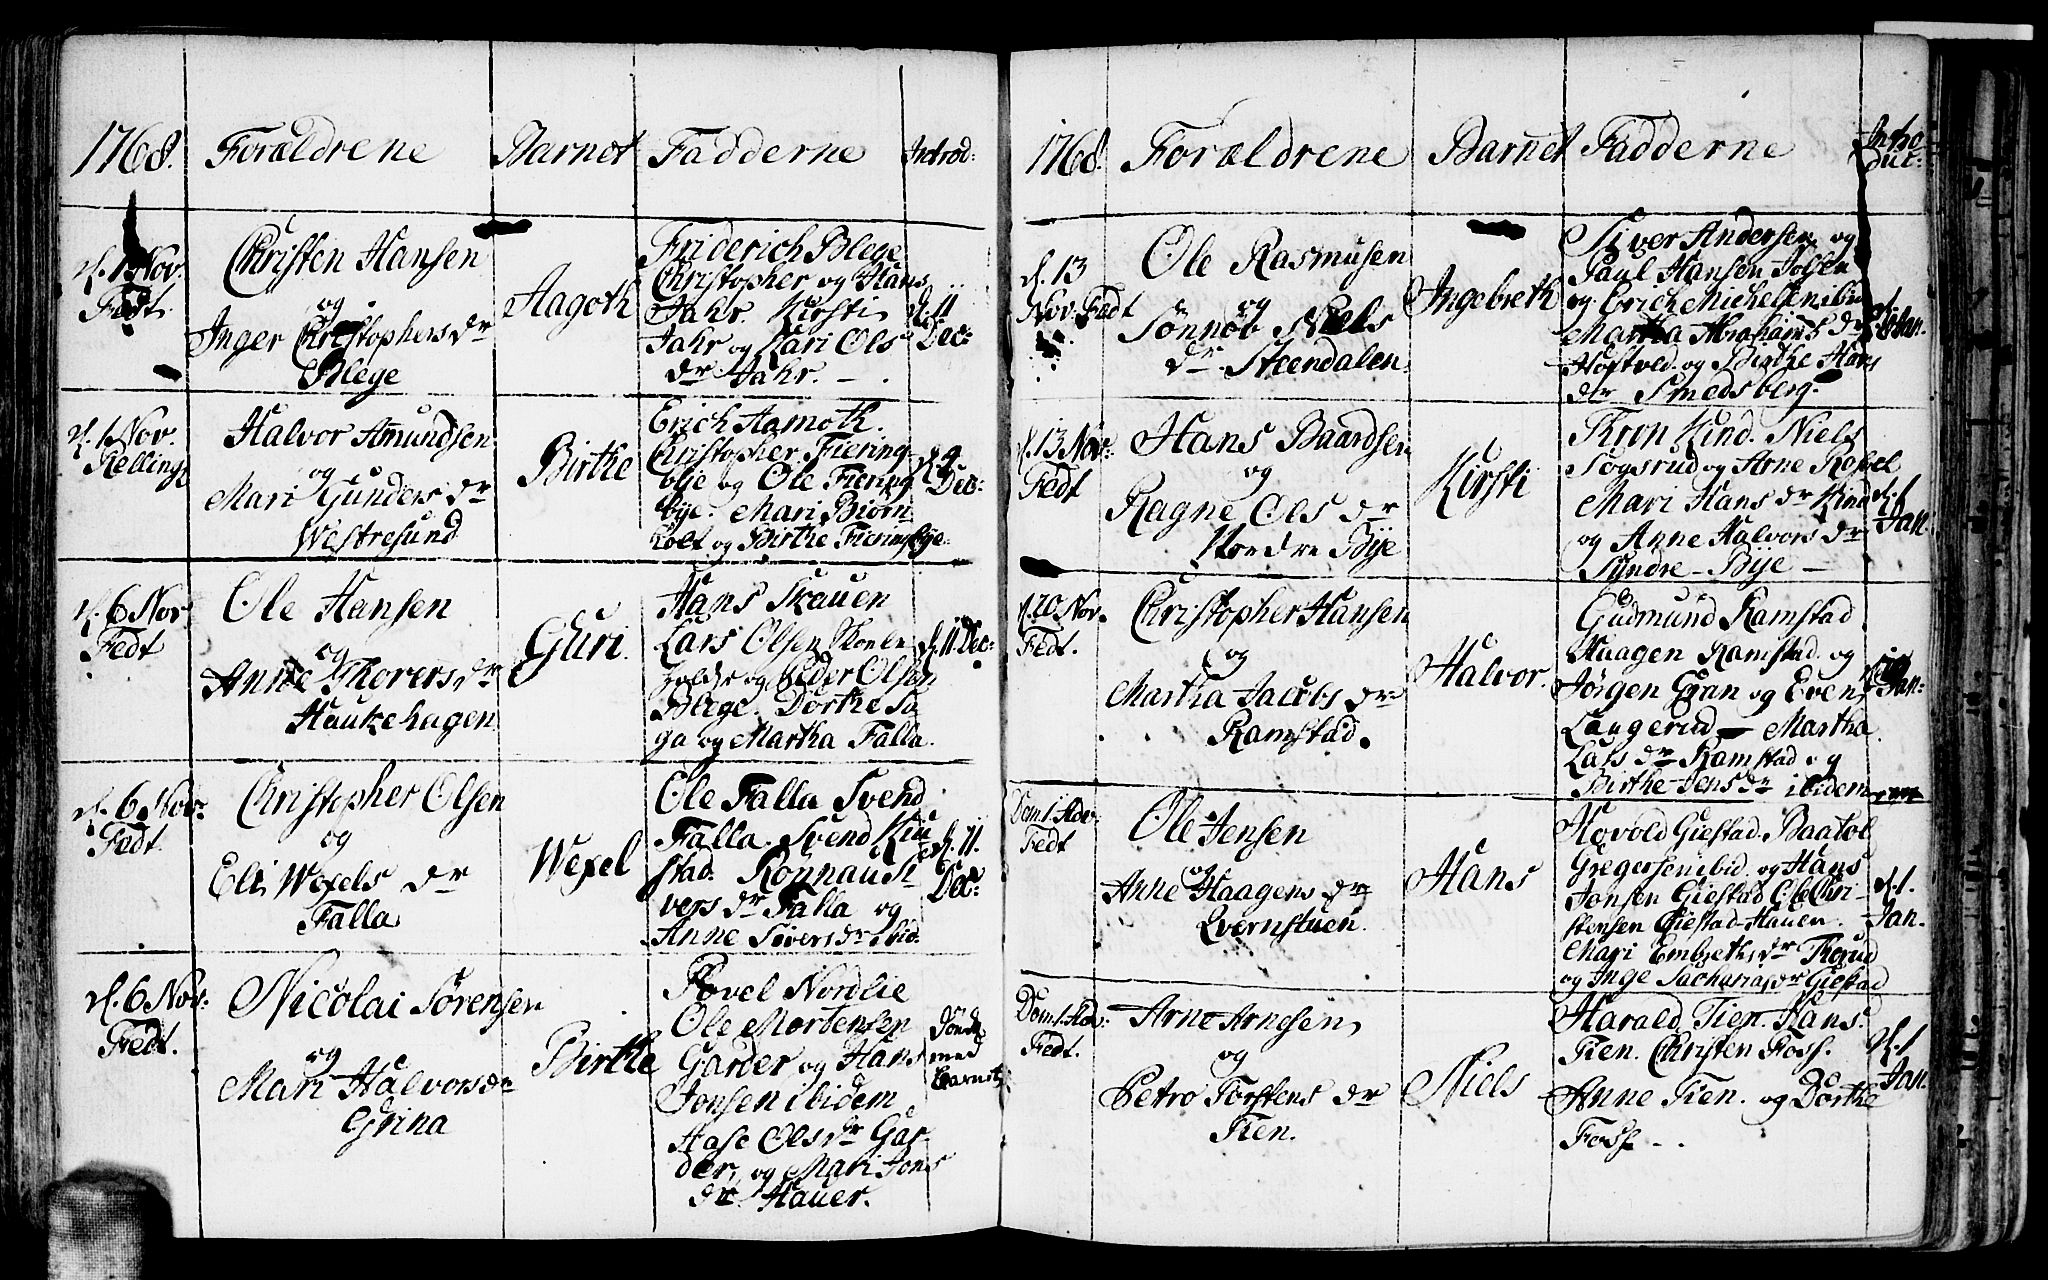 1768. Forældrene Barnet Fadderne Introd:
d. 1 Nov. Fedt.
Christen Hansen
og
Inger Christophersdr
Blege
Aagoth
Friderich Blege
Christopher og Hans
Jahr. Kirsti
Jahr og Kari Ols
dr Jahr. –
d. 11 Dec:
d. 1 Nov.
Rellings
Halvor Amundsen
og
Mari Gunders dr
Westresund
Birthe
Erich Aamoth.
Christopher Fiering
bye og Ole Fiering
bye. Mari Biørn
holt og Birthe Fieringbye.
d. 9 Dec:
d. 6 Nov
Fedt
Ole Hansen
og
Anne Thorersdr
Haukehagen
Guri.
Hans Skauen
Lars Olsen Skole
holdr og Peder Olsen
Blege. Dorthe Sa
ga og Martha Falla.
d. 11 Dec:
d. 6 Nov:
Fedt
Christopher Olsen
og
Eli Wexels dr
Falla
Wexel
Ole Falla Svend
Falla. Svend Kiu
stad. Ronnau Si
vers dr Falla og
Anne Siversdr ibid.
d. 11.
Dec:
d. 6 Nov:
Fedt.
Nicolai Sørensen
og
Mari Halvorsdr
Grina
Birthe
Povel Nordlie
Ole Mortensen
Garder og Hans
Jonsen ibidem
Aase Olsdr Gar
der, og Mari Jons
dr Hauer.
Døde
med
Barnet
1768. Forældrene Barnet Fadderne Introduc:
d. 13
Nov. Fedt
Ole Rasmusen
og
Sønnøv Niels
dr. Steendalen.
Ingebreth
Siver Andersen og
Paul Hansen Jolsen
og Erich Michelsen ibid
Martha Abrahams dr
Hoftved. og Birthe Hans
dr Smedsberg.
Jan.
d. 13 Nov:
Fedt
Hans Baardsen
og
Ragne Ols dr
Nordre Bije
Kirsti
Thron Kind. Niels
Sogsrud og Arne
Mari Hans dr Kind
og Anne Halvors dr
Syndre – Bije –
d. 1
Jan.
d. 20 Nov.
Fedt.
Christopher Hansen
og
Martha Jacobs dr
Ramstad.
Halvor.
Gudmund Ramstad
Haagen Ramstad. og
Jørgen Gran og Even
Laugerud – Martha
Lars dr Ramstad og
Birthe Jens dr ibidem
Jan:
Dom 1. Adv.
Fedt
Ole Jensen
og
Anne Haagens dr
Qvernstuen.
Hans
Hovold Giestad. Baatol
Gregersen ibid. og Hans
Jonsen Giestad Ole Chri-
stensen Giestad-Hauen.
Mari Embrethsdr Thorud
og Inge Sachariasdr Giestad
d. 1.
Jan.
Dom. 1. Adv:
Fedt.
Arne Arnesen
og
Petro Torstens dr
Tien.
Niels
Harald Tien. Hans
Tien. Christen Foss.
Anne Tien. og Dorthe
Foss –.
d. 1
Jan.